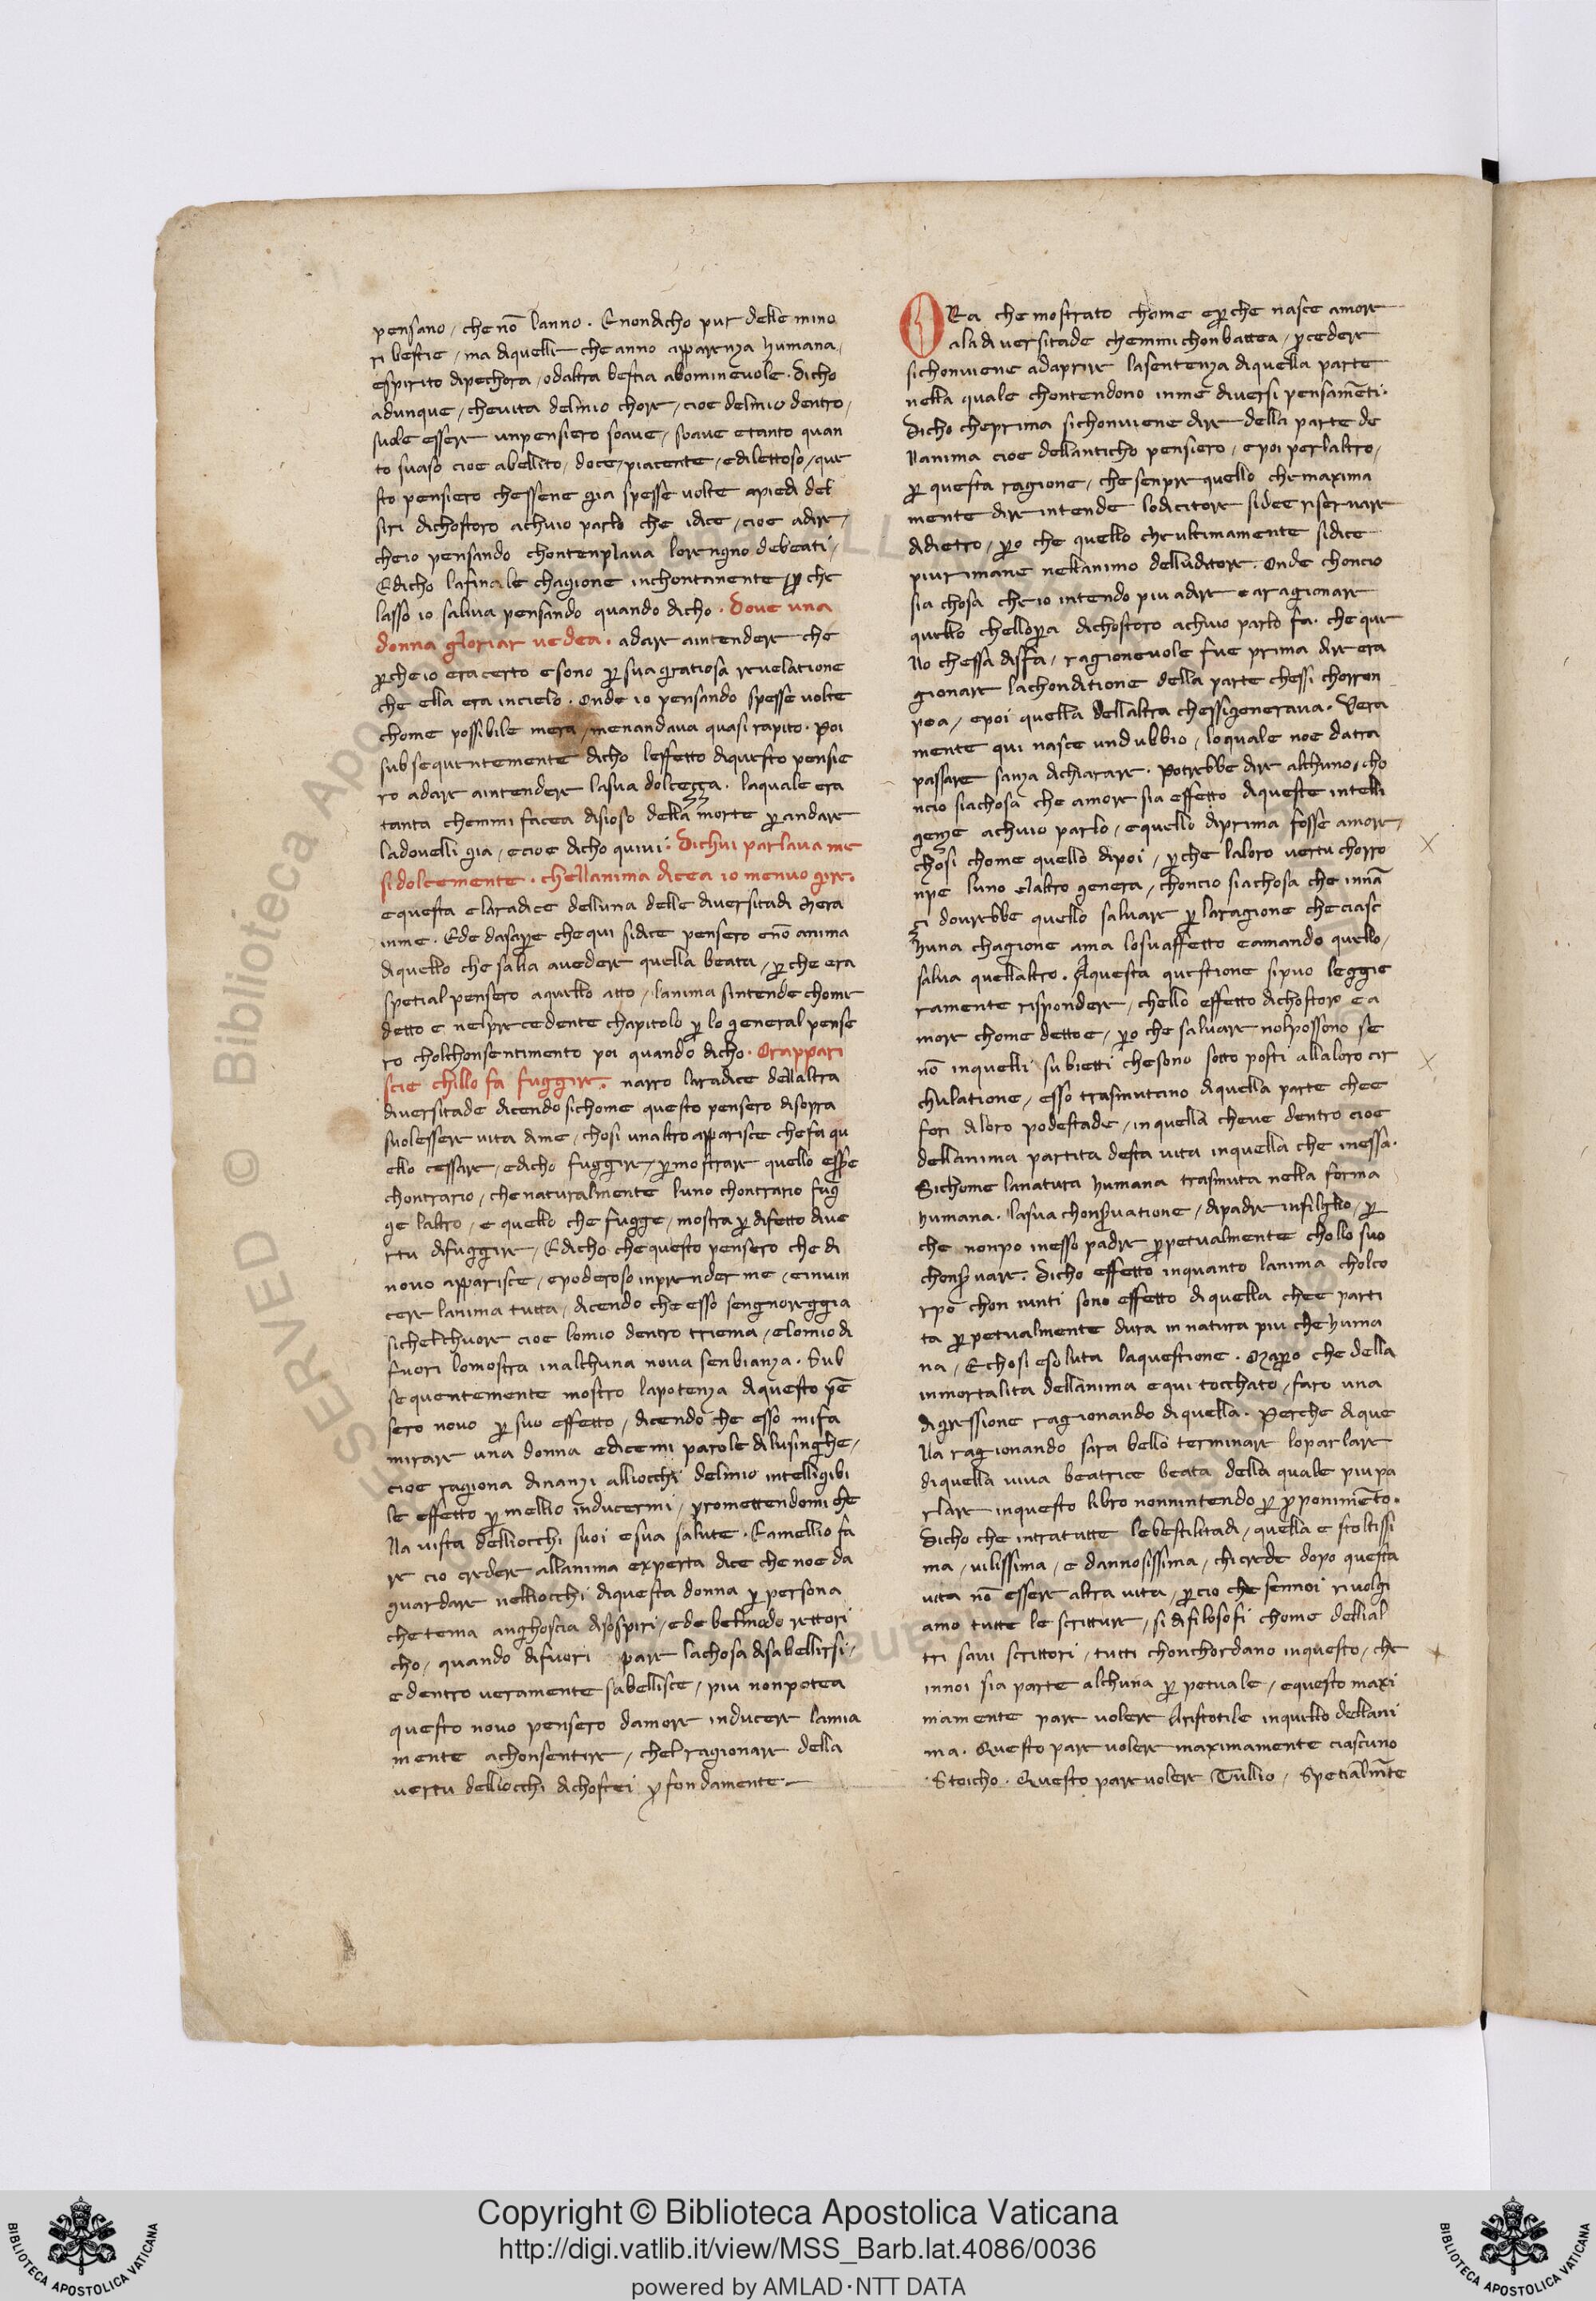 pensano / che nō lanno . Enondicho pur delle mino
ri bestie / ma diquelli che anno apparenza humana /
espirito dipechora / odaltra bestia abominevole . Dicho
adunque / chevita delmio chore / cioe delmio dentro /
suole essere unpensiero soave / soave e tanto quan
to suaso cioe abellito / doce / piacente / e dilettoso / que
sto pensiero chessene gia spesse volte apiedi del
siri dichostoro achuio parlo che idice / cioe adire /
cheio pensando chontenplava loregno debeati /
Edicho lafinale chagione inchontanente / p̱ che
lasso io saliva pensando quando dicho . Dove una
donna gloriar vedea . adare aintendere che
p̱cheio era certo e sono p̱ sua gratiosa revelatione
che ella era incielo . Onde io pensando spesse volte
chome possibile mera / menandava quasi rapito . Poi
subsequentemente dicho leffetto diquesto pensie
ro adare aintendere lasua dolcezza . laquale era
tanta chemmi facea disioso della morte p̱ andare
ladovelli gia / ecioe dicho quivi . Dichui parlava me
sidolcemente . chellanima dicea io menvo gire .
e questa e laradice delluna delle diversitadi chera
inme . Ede dasap̱e che qui sidice pensero enō anima
diquello che salia avedere quella beata / p̱ che era
spetial pensero aquello atto / lanima sintende chome
detto e nelprecedente chapitolo p̱ lo general pense
ro cholchonsentimento poi quando dicho . Orappari
scie chillo fa fuggire . narro laradice dellaltra
diversitade dicendo sichome questo pensero disopra
suolessere vita dime / chosi unaltro apparisce chefa qu
ello cessare / edicho fuggire / p̱mostrare quello esse
chontrario / che naturalmente luno chontrario fug
ge laltro / e quello che fugge / mostra p̱ difetto dive
rtu difuggire / Edicho che questo pensero che di
novo apparisce / epoderoso inprender me / e invin
cere lanima tutta / dicendo che esso sengnoreggia
sichelchuore cioe lomio dentro triema / elomio di
fuori lomostra inalchuna nova senbianza . Sub
sequentemente mostro lapotenza diquesto pē
sero novo p̱ suo effetto / dicendo che esso mifa
mirare una donna e dicemi parole dilusinghe /
cioe ragiona dinanzi alliocchi delmio intelligibi
le effetto p̱ mellio inducermi / promettendomi che
lla vista delliocchi suoi e sua salute . Eamellio fa
re cio credere allanima experta dice che noe da
guardare nelliocchi diquesta donna p̱ persona
che tema anghoscia disospiri / ede belmodo rettori
cho / quando difuori pare lachosa disabellirsi /
e dentro veramente sabellisce / piu nonpotea
questo novo pensero damore inducere lamia
mente achonsentire / chelragionare della
vertu delliocchi dichostei p̱fondamente
ORa che mostrato chome ep̱che nasce amore
aladiversitade chemmichonbattea / p̱cedere
sichonviene adaprire lasentenza diquella parte
nella quale chontendono inme diversi pensamēti .
Dicho cheprima sichonviene dire della parte de
llanima cioe dellanticho pensiero / e poi perlaltro /
p̱ questa ragione / che senpre quello che maxima
mente dire intende lodicitore sidee riservare
didietro / p̱o che quello che ultimamente sidice
piu rimane nellanimo delluditore . Onde choncio
sia chosa che io intendo piu adire e aragionare
quello chellop̱a dichostoro achuio parlo fa . che que
llo chessa disfa / ragionevole fue prima dire era
gionare lachonditione della parte chessi chorron
pea / epoi quella dellaltra chessigenerava . Vera
mente qui nasce undubbio / loquale noe datra
passare sanza dichiarare . Potrebbe dire alchuno / cho
ncio siachosa che amore sia effetto diqueste intelli
genze achuio parlo / e quello diprima fosse amore /
chosi chome quello dipoi / p̱che laloro vertu chorro
npe luno elaltro genera / choncio siachosa che innā
zi dovrebbe quello salvare p̱ laragione che ciasc
huna chagione ama losuaffetto eamando quello /
salva quellaltro . Aquesta questione sipuo leggie
ramente rispondere / chello effetto dichostoro e a
more chome detto e / p̱o che salvare nolpossono se
nō inquelli subietti chesono sotto posti allaloro cir
chulatione / esso trasmutano diquella parte chee
fori diloro podestade / inquella cheve dentro cioe
dellanima partita desta vita inquella che inessa .
Sichome lanatura humana trasmuta nella forma
humana . lasua chons̱vatione / dipadre infiglio / p̱
che nonpo inesso padre p̱petualmente chollo suo
chons̱vare . Dicho effetto inquanto lanima cholco
rpo chon iunti sono effetto diquella chee parti
ta p̱petualmente dura in natura piu che huma
na / Echosi esoluta laquestione . Map̱o che della
inmortalita dellanima e qui tocchato / faro una
digressione ragionando diquella . Perche dique
lla ragionando sara bello terminare loparlare
diquella viva beatrice beata della quale piupa
rlare inquesto libro nonnintendo p̱ p̱ponimēto .
Dicho che intratutte lebestilitadi / quella e stoltissi
ma / vilissima / e dannosissima / chi crede dopo questa
vita nō essere altra vita / p̱cio che sennoi rivolgi
amo tutte le scritture / si difilosofi chome dellial
tri savi scrittori / tutti chonchordano inquesto / che
innoi sia parte alchuna p̱petuale / equesto maxi
mamente pare volere Aristotile inquello dellani
ma . Questo pare volere maximamente ciascuno
Stoicho . Questo pare volere Tullio / spetialmēte
RESERVED © Biblioteca Apostolica Vaticana
Copyright © Biblioteca Apostolica Vaticana
http://digi.vatlib.it/view/MSS_Barb.lat.4086/0036
powered by AMLAD·NTT DATA
BIBLIOTECA APOSTOLICA VATICANA
BIBLIOTECA APOSTOLICA VATICANA